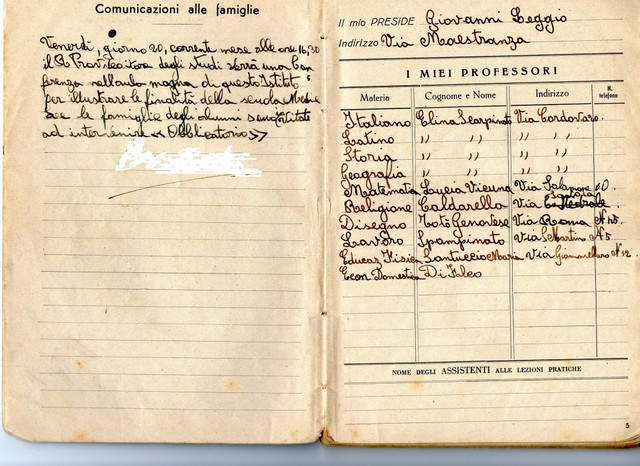 Comunicazioni alle famiglie
Venerdì, giorno 20, corrente mese alle ore 16,30
il R Provveditore degli studi terrà una Con
ferenza nell'aula magna di questo Istituto
per illustrare le finalità della scuola Media
e le famiglie degli alunni sono invitate
ad intervenire << Obbligatorio >>
Il mio PRESIDE Giovanni Leggio
Indirizzo Via Maestranza
I MIEI PROFESSORI
Materia Cognome e Nome Indirizzo N. telefono
Italiano Elina Scarpinato Via Cordovazo
Latino " " " "
Storia " " " "
Geografia " " " "
Matemat Lucia Vicuna Via
Religione Caldarella Via
Disegno Totò Genovese Via Roma N
Lavoro Spampinato Via S Martino N 5
Educaz Fisica Santuccio Maria Via N 12
Econ Domestica Di Falco
NOME DEGLI ASSISTENTI ALLE LEZIONI PRATICHE
5